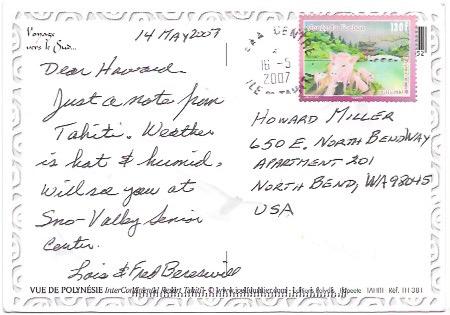 Passage
vers le Sud...
14 May 2007
Dear Howard.
Just a note from
Tahiti. Weather
is hot & humid.
Will see you at
Sno-Valley Senior
Center.
Lois & Fred Bereswill
16-5
2007
130F
HOWARD MILLER
650 E. NORTH BEND WAY
APARTMENT 201
NORTH BEND, WA 98045
USA
VUE DE POLYNÉSIE InterContinental Resort Tahiti
Papeete TAHITI Réf.